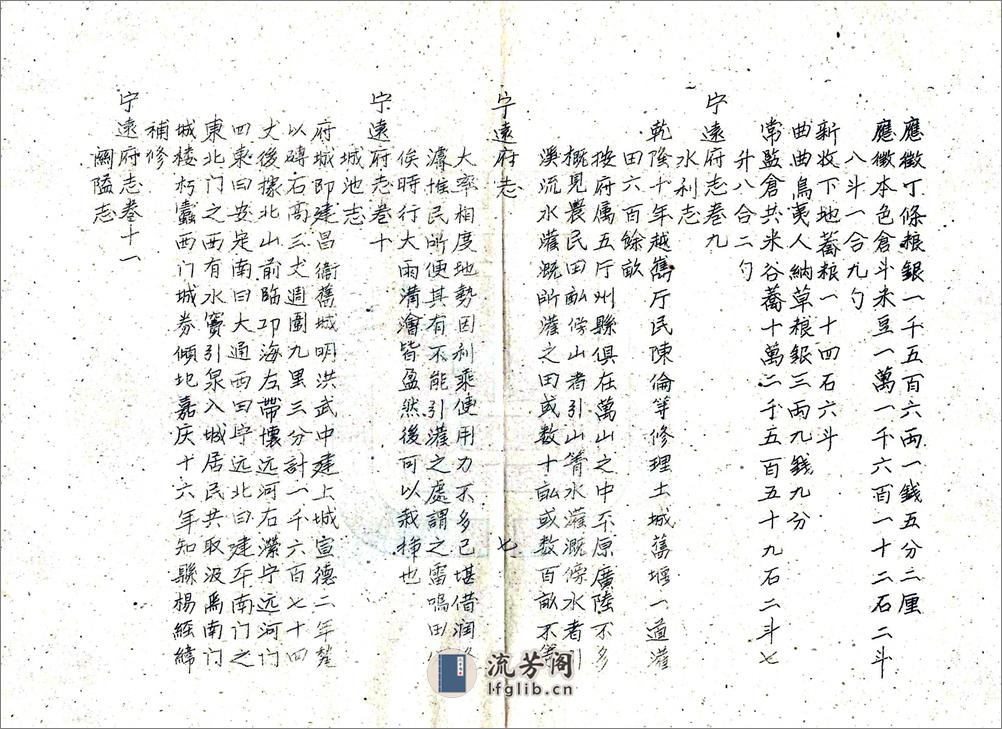 應徵丁條粮銀一千五百六两一錢五分二厘
應徵本色倉斗米豆一萬一千六百一十二石二斗
八斗一合九勺
新收下地蕎粮一十四石六斗
曲曲鳥夷人納草粮銀三两九錢九分
常監倉共米谷蕎十萬二千五百五十九石二斗七
升八合二勺
宁遠府志卷九
水利志
乾隆十年越嶲厅民陳倫等修理土城舊堰一道灌
田六百餘畝
按府属五厅州縣俱在萬山之中平原廣陸不多
概見農民田畝傍山者引山箐水灌溉傍水者引
溪流水灌溉所灌之田或数十畝或数百畝不等
宁遠府志 七
大率相度地勢因利乘便用力不多已堪借润
濬惟民所便其有不能引灌之處謂之雷鳴田
俟時行大雨溝澮皆盈然後可以栽插也
宁遠府志卷十
城池志
府城即建昌衛舊城明洪武中建土城宣德二年甃
以磚石高三丈週圍九里三分計一千六百七十四
丈後據北山前临邛海左帶懷远河右濴宁远河门
四東曰安定南曰大通西曰宁远北曰建平南门之
東北门之西有水竇引泉入城居民共取汲焉南门
城楼朽蠹西门城券傾圮嘉庆十六年知縣楊經緯
補修
宁遠府志卷十一
關隘志
流芳阁
lfglib.cn